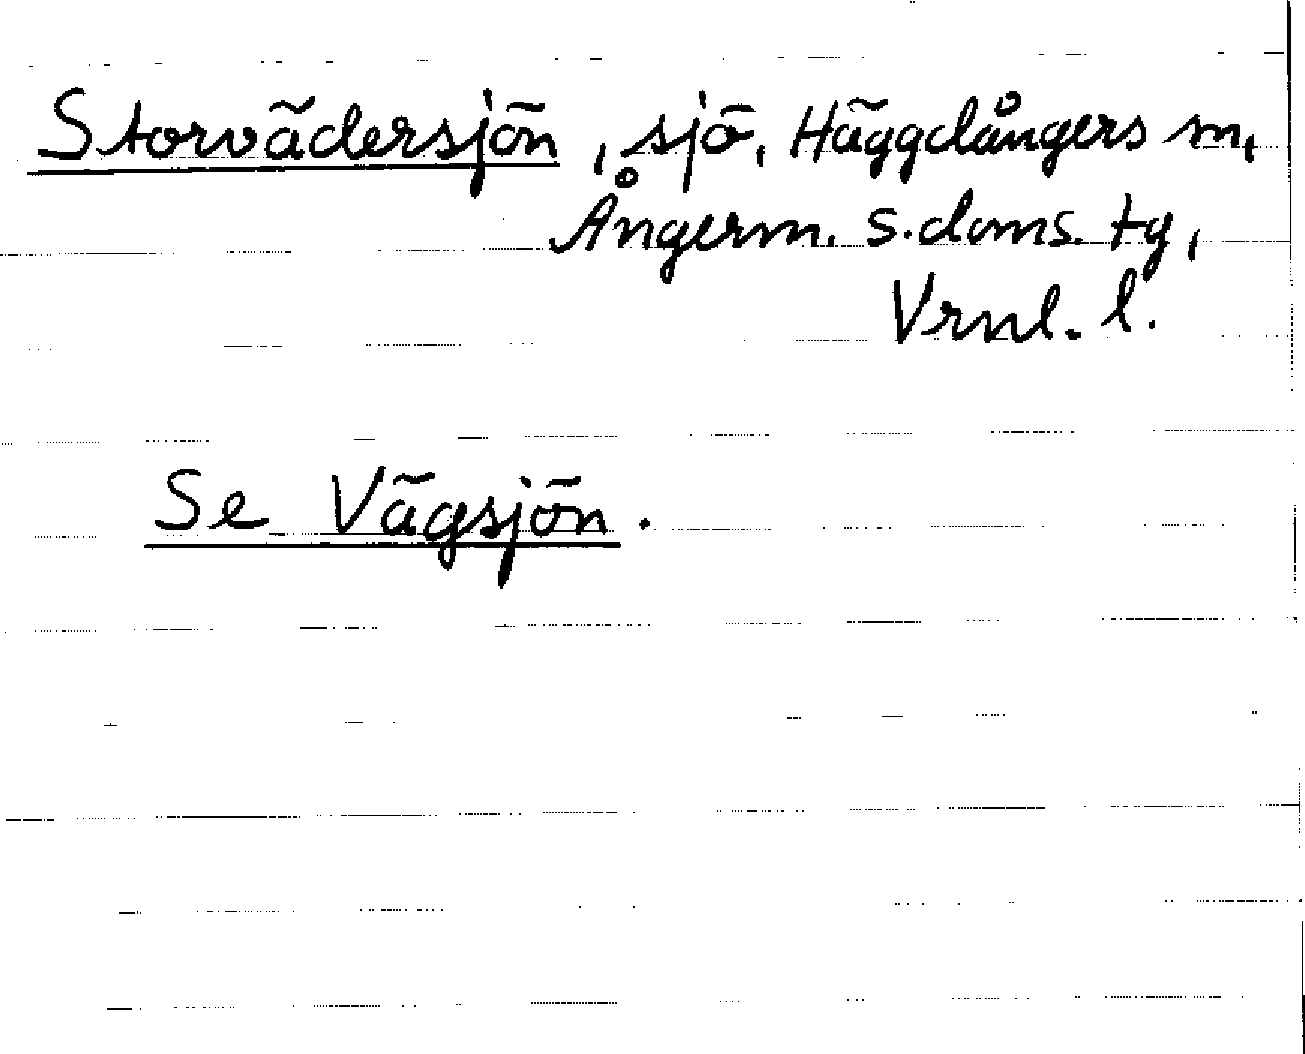 Storvädersjön, sjö, Häggdångers m,
Ångerm. s. doms. tg,
Vrnl. l.
Se Vägsjön.